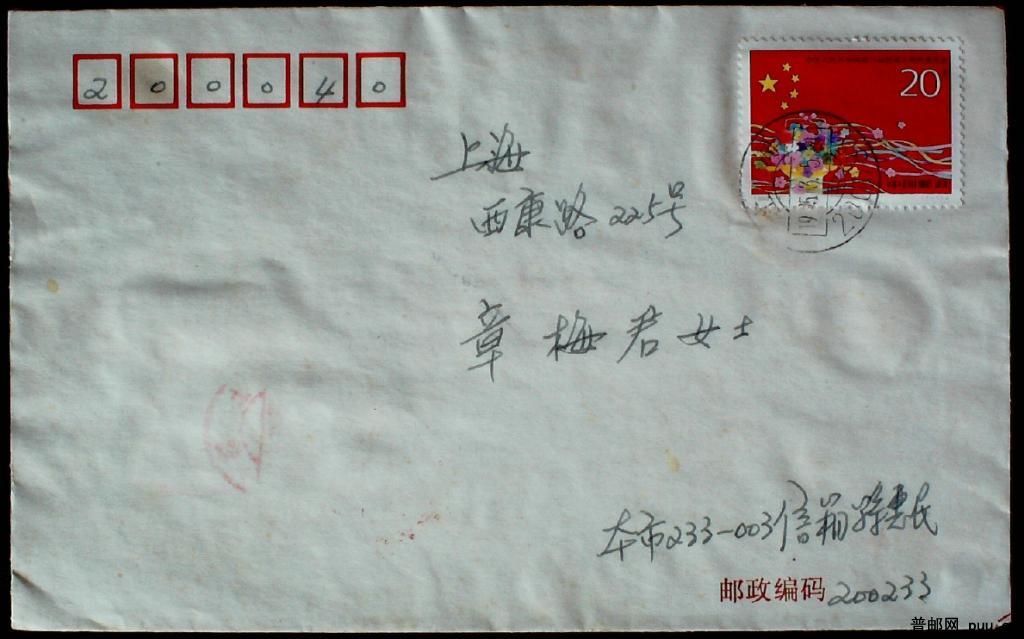 200040
20
上海
西康路225号
章梅君女士
本市233-003信箱 惠民
邮政编码 200233
普邮网 puu